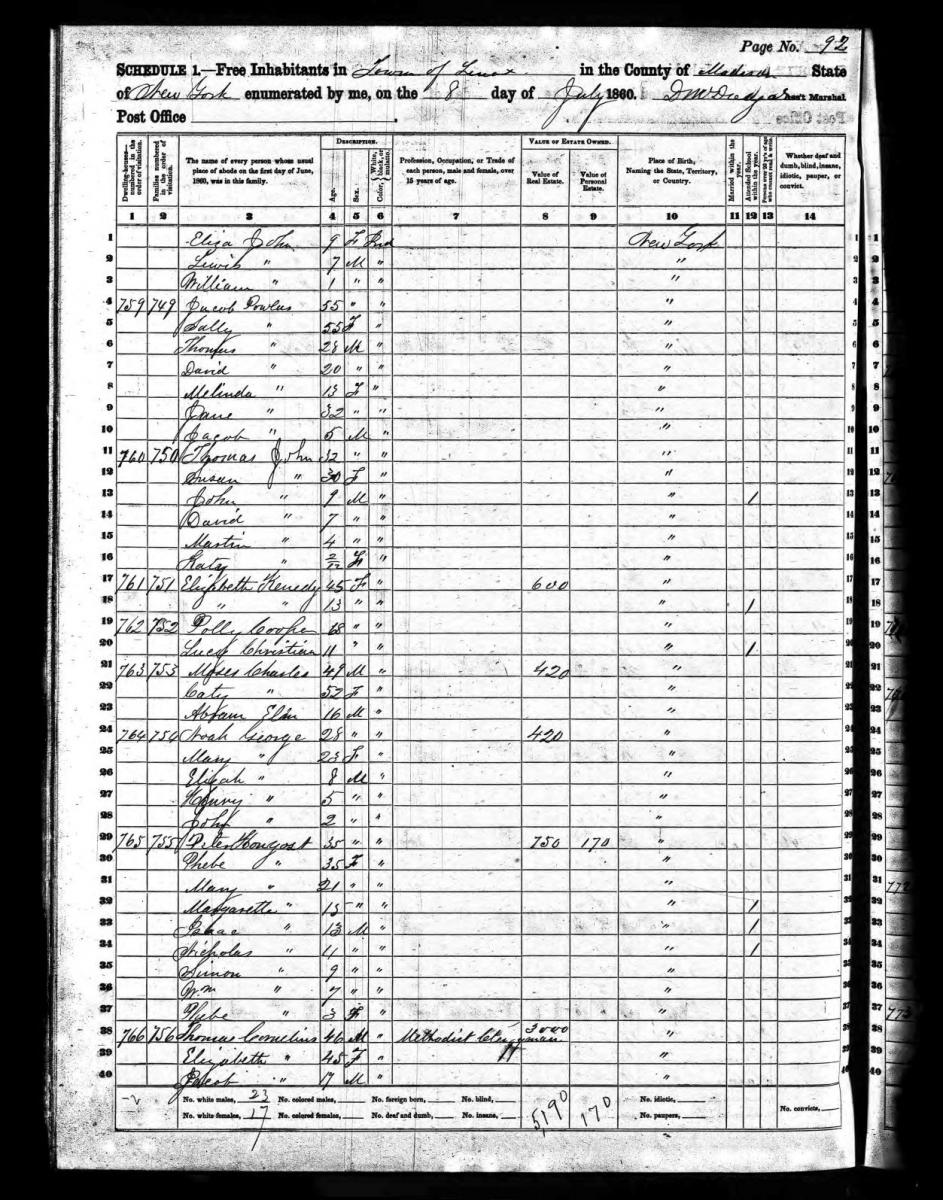 Page No. 92
SCHEDULE 1.—Free Inhabitants in Town of Lenox in the County of Madison State
of New York enumerated by me, on the 8 day of July 1860. Ass't Marshal
Post Office
Dwelling-houses—numbered in the order of visitation. Families numbered in the order of visitation. The name of every person whose usual place of abode on the first day of June, 1860, was in this family. DESCRIPTION. Age. Sex. Color, White, black, or mulatto. Profession, Occupation, or Trade of each person, male and female, over 15 years of age. VALUE OF ESTATE OWNED. Value of Real Estate. Value of Personal Estate. Place of Birth, Naming the State, Territory, or Country. Married within the year. Attended School within the year. Persons over 20 y'rs of age who cannot read & write. Whether deaf and dumb, blind, insane, idiotic, pauper, or convict.
1 2 3 4 5 6 7 8 9 10 11 12 13 14
1 Eliza John 9 F Ind New York 1
2 Lewis " 7 M " " 2
3 William " 1 " " " 3
4 759 749 Jacob Powlus 55 " " " 4
5 Sally " 55 F " " 5
6 Thomas " 28 M " " 6
7 David " 20 " " " 7
8 Melinda " 13 F " " 8
9 Jane " 32 " " " 9
10 Jacob " 5 M " " 10
11 760 750 Thomas John 32 " " " 11
12 Susan " 30 F " " 12
13 John " 9 M " " / 13
14 David " 7 " " 14
15 Martin " 4 " " " 15
16 Katy " 2/12 F " " 16
17 761 751 Elizabeth Kenedy 45 F " 600 " 17
18 " " 13 " " " / 18
19 762 752 Polly Cooper 68 " " " 19
20 Lucy Christian 11 " " " / 20
21 763 753 Moses Charles 49 M " 420 " 21
22 Caty " 52 F " " 22
23 Abram Elm 16 M " " 23
24 764 754 Noah George 28 " " 420 " 24
25 Mary " 23 F " " 25
26 Elijah " 8 M " " 26
27 Henry " 5 " " " 27
28 John " 2 " " " 28
29 765 755 Peter Honyost 35 " " 750 170 " 29
30 Phebe " 35 F " " 30
31 Mary " 21 " " " 31
32 Margarette " 15 " " " / 32
33 Isaac " 13 M " " / 33
34 Nicholas " 11 " " " / 34
35 Simon " 9 " " " 35
36 Wm " 7 " " " 36
37 Phebe " 3 F " " 37
38 766 756 Thomas Cornelius 46 M " Methodist Clergyman 3000 " 38
39 Elizabeth " 45 F " " 39
40 Jacob " 17 M " " 40
No. white males, 23 No. colored males, No. foreign born, No. blind, 5190 170 No. idiotic,
No. white females, 17 No. colored females, No. deaf and dumb, No. insane, No. paupers, No. convicts,